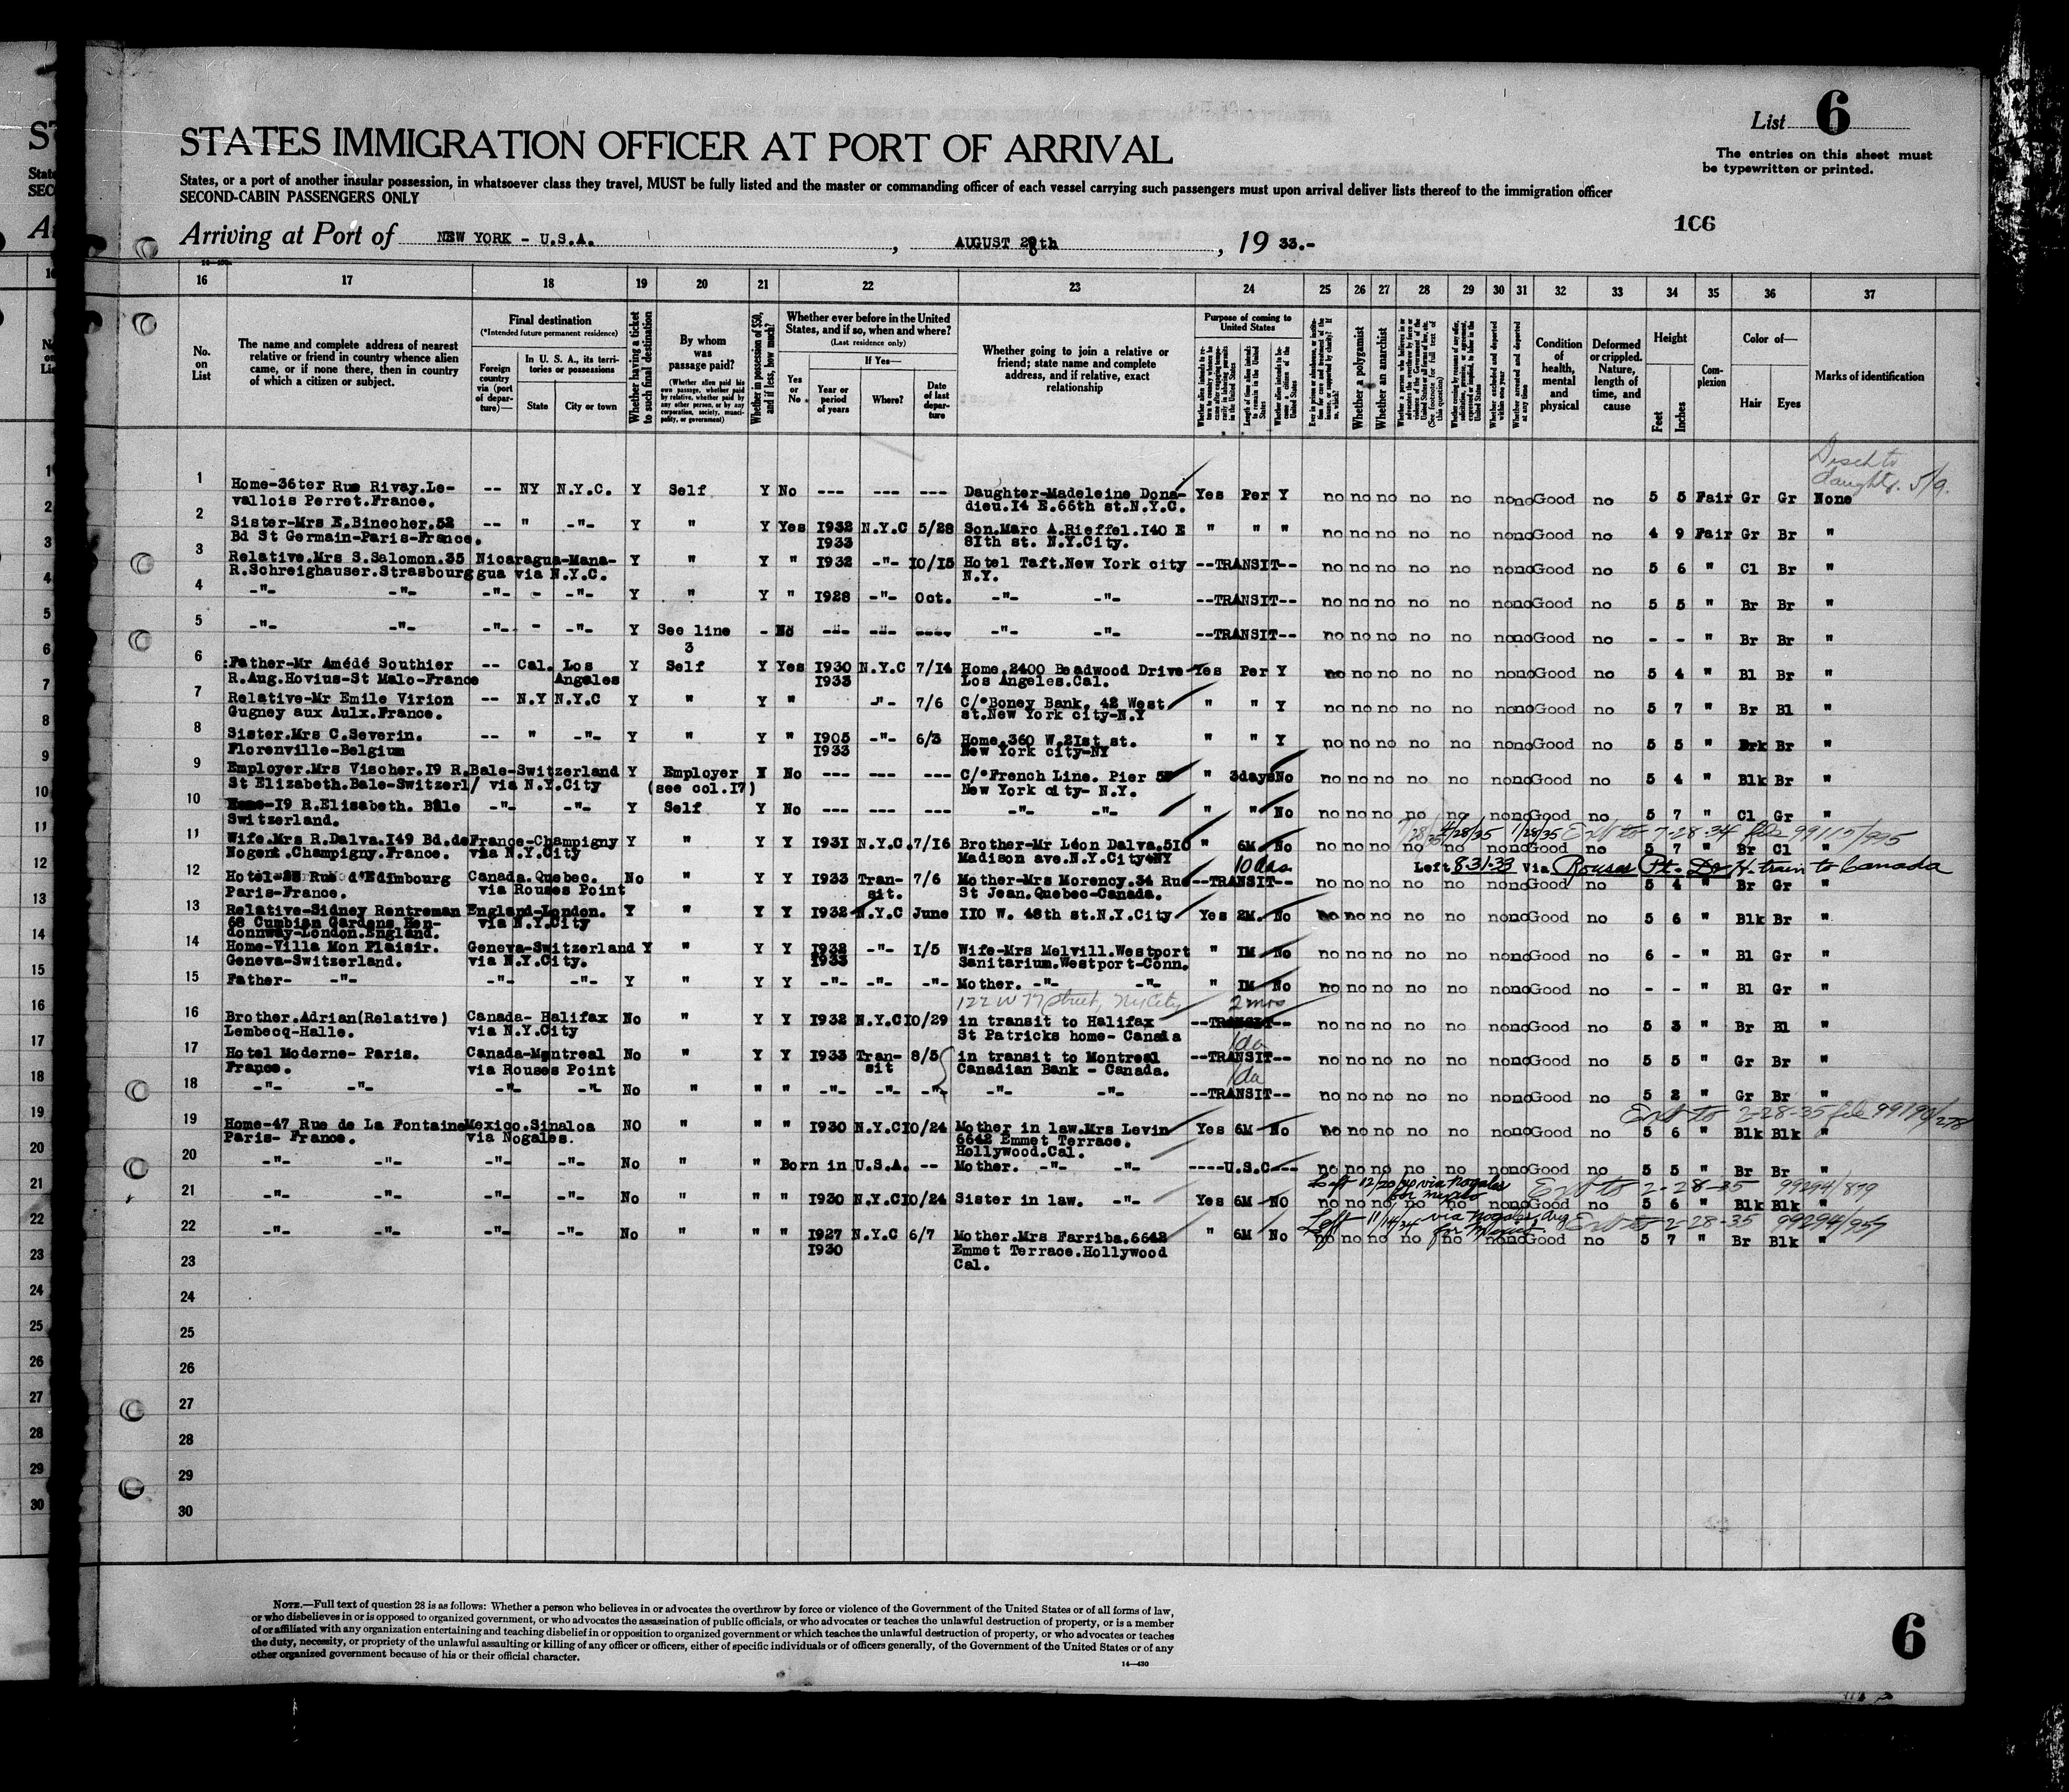 List 6
STATES IMMIGRATION OFFICER AT PORT OF ARRIVAL
The entries on this sheet must
be typewritten or printed.
States, or a port of another insular possession, in whatsoever class they travel, MUST be fully listed and the master or commanding officer of each vessel carrying such passengers must upon arrival deliver lists thereof to the immigration officer
SECOND-CABIN PASSENGERS ONLY
106
Arriving at Port of NEW YORK - U.S.A. , AUGUST 28th , 19 33.-
16 17 18 19 20 21 22 23 24 25 26 27 28 29 30 31 32 33 34 35 36 37
No. on List
The name and complete address of nearest relative or friend in country whence alien came, or if none there, then in country of which a citizen or subject.
Final destination
(*Intended future permanent residence)
Foreign country via (port of departure)—
In U. S. A., its territories or possessions
State City or town
Whether having a ticket to such final destination
By whom was passage paid?
(Whether alien paid his own passage, whether paid by relative, whether paid by any other person, or by any corporation, society, municipality, or government)
Whether in possession of $50, and if less, how much?
Whether ever before in the United States, and if so, when and where?
(Last residence only)
Yes or No
If Yes—
Year or period of years
Where?
Date of last departure
Whether going to join a relative or friend; state name and complete address, and if relative, exact relationship
Purpose of coming to United States
Whether a polygamist
Whether an anarchist
Condition of health, mental and physical
Deformed or crippled. Nature, length of time, and cause
Height
Feet Inches
Complexion
Color of—
Hair Eyes
Marks of identification
1 Home-36ter Rue Rivay.Le- -- NY N.Y.C. Y Self Y No --- --- --- Daughter-Madeleine Dona- Yes Per Y no no no no no no no Good no 5 5 Fair Gr Gr None
vallois Perret.France. dieu.14 E.66th st.N.Y.C.
2 Sister-Mrs E.Binecher.52 -- " -"- Y " Y Yes 1932 N.Y.C 5/28 Son.Marc A.Rieffel.140 E " " " no no no no no no no Good no 4 9 Fair Gr Br "
Bd St Germain-Paris-France. 1933 81th st. N.Y.City.
3 Relative.Mrs S.Salomon.35 Nicaragua-Mana- Y " Y " 1932 -"- 10/15 Hotel Taft.New York city --TRANSIT-- no no no no no no no Good no 5 6 " Cl Br "
R.Schreighauser.Strasbourg gua via N.Y.C. N.Y.
4 -"- -"- -"- - -"- Y " Y " 1928 -"- Oct. -"- -"- --TRANSIT-- no no no no no no no Good no 5 5 " Br Br "
5 -"- -"- -"- - -"- Y See line - No --- --- ---- -"- -"- --TRANSIT-- no no no no no no no Good no - - " Br Br "
3
6 Father-Mr Amédé Southier -- Cal. Los Y Self Y Yes 1930 N.Y.C 7/14 Home.2400 Beadwood Drive Yes Per Y no no no no no no no Good no 5 4 " Bl Br "
R.Aug.Hovius-St Malo-France Angeles 1933 Los Angeles.Cal.
7 Relative-Mr Emile Virion -- N.Y N.Y.C Y " Y " -"- 7/6 C/°Boney Bank. 42 West " " Y no no no no no no no Good no 5 7 " Br Bl "
Gugney aux Aulx.France. st.New York city-N.Y
8 Sister.Mrs C.Severin. -- " -"- Y " Y " 1905 -"- 6/3 Home.360 W.21st st. " " Y no no no no no no no Good no 5 5 " Brk Br "
Florenville-Belgium 1933 New York city-NY
9 Employer.Mrs Vischer.19 R. Bale-Switzerland Y Employer Y No --- --- --- C/°French Line. Pier 57 " 3days No no no no no no no no Good no 5 4 " Blk Br "
St Elizabeth.Bale-Switzerl/ via N.Y.City (see col.17) New York city- N.Y.
10 Home-19 R.Elisabeth. Bâle -"- -"- Y Self Y No --- --- --- -"- -"- " " No no no no no no no no Good no 5 7 " Cl Gr "
Switzerland.
4/28/35 1/28/35 Ext to 7-28-34 file 99115/995
11 Wife.Mrs R.Dalva.149 Bd.de France-Champigny Y " Y Y 1931 N.Y.C. 7/16 Brother-Mr Léon Dalva.510 " 6M No no no no no no no no Good no 5 7 " Br Cl "
Nogent.Champigny.France. via N.Y.City Madison ave.N.Y.City-NY
10 das Left 8.31.33 Via Rouses Pt. D&H. train to Canada
12 Hotel-25 Rue d'Edimbourg Canada.Quebec. No " Y Y 1933 Tran- 7/6 Mother-Mrs Morency.34 Rue --TRANSIT-- no no no no no no no Good no 5 4 " Br Gr "
Paris-France. via Rouses Point sit. St Jean.Quebec-Canada.
13 Relative-Sidney Rentreman England-London. Y " Y Y 1932 N.Y.C June 110 W. 48th st.N.Y.City Yes 2M. No no no no no no no no Good no 5 6 " Blk Br "
68 Cumbian Gardens Hen- via N.Y.City
donnway-London.England.
14 Home-Villa Mon Plaisir. Geneva-Switzerland Y " Y Y 1932 -"- 1/5 Wife-Mrs Melvill.Westport " 1M No no no no no no no no Good no 6 - " Bl Gr "
Geneva-Switzerland. via N.Y.City. 1933 Sanitarium.Westport-Conn.
15 Father- -"- -"- -"- Y " Y Y -"- -"- -"- Mother. -"- -"- " 1M No no no no no no no no Good no - - " Bl Gr "
122 W 77 Street, NyCity 2 mos
16 Brother.Adrian(Relative) Canada- Halifax No " Y Y 1932 N.Y.C 10/29 in transit to Halifax --TRANSIT-- no no no no no no no Good no 5 3 " Br Bl "
Lembecq-Halle. via N.Y.City St Patricks home- Canada
1da
17 Hotel Moderne- Paris. Canada-Montreal No " Y Y 1933 Tran- 8/5 in transit to Montreal --TRANSIT-- no no no no no no no Good no 5 5 " Gr Br "
France. via Rouses Point sit Canadian Bank - Canada.
1da
18 -"- -"- -"- -"- No " " " -"- -"- -"- -"- -"- --TRANSIT-- no no no no no no no Good no 5 2 " Gr Br "
Ext to 2-28-35 file
19 Home-47 Rue de La Fontaine Mexico.Sinaloa NO " " " 1930 N.Y.C 10/24 Mother in law.Mrs Levin Yes 6M No no no no no no no no Good no 5 6 " Blk Blk "
Paris- France. via Nogales. 6642 Emmet Terrace.
Hollywood.Cal.
20 -"- -"- -"- -"- No " " Born in U.S.A. -- Mother. -"- -"- ----U.S.C---- no no no no no no no Good no 5 5 " Br Br "
Left 12/20/40 via Nogales for Mexico Ext to 2-28-35 99294/899
21 -"- -"- -"- -"- No " " " 1930 N.Y.C 10/24 Sister in law. -"- Yes 6M No no no no no no no no Good no 5 6 " Blk Blk "
Left 11/14/34 via Nogales Arg for Mexico. Ext to 2-28-35 99294/957
22 -"- -"- -"- -"- No " " " 1927 N.Y.C 6/7 Mother.Mrs Farriba.6642 " 6M No no no no no no no no Good no 5 7 " Br Blk "
1930 Emmet Terrace.Hollywood
Cal.
23
24
25
26
27
28
29
30
NOTE.—Full text of question 28 is as follows: Whether a person who believes in or advocates the overthrow by force or violence of the Government of the United States or of all forms of law,
or who disbelieves in or is opposed to organized government, or who advocates the assassination of public officials, or who advocates or teaches the unlawful destruction of property, or is a member
of or affiliated with any organization entertaining and teaching disbelief in or opposition to organized government or which teaches the unlawful destruction of property, or who advocates or teaches
the duty, necessity, or propriety of the unlawful assaulting or killing of any officer or officers, either of specific individuals or of officers generally, of the Government of the United States or of any
other organized government because of his or their official character.
14—430
6